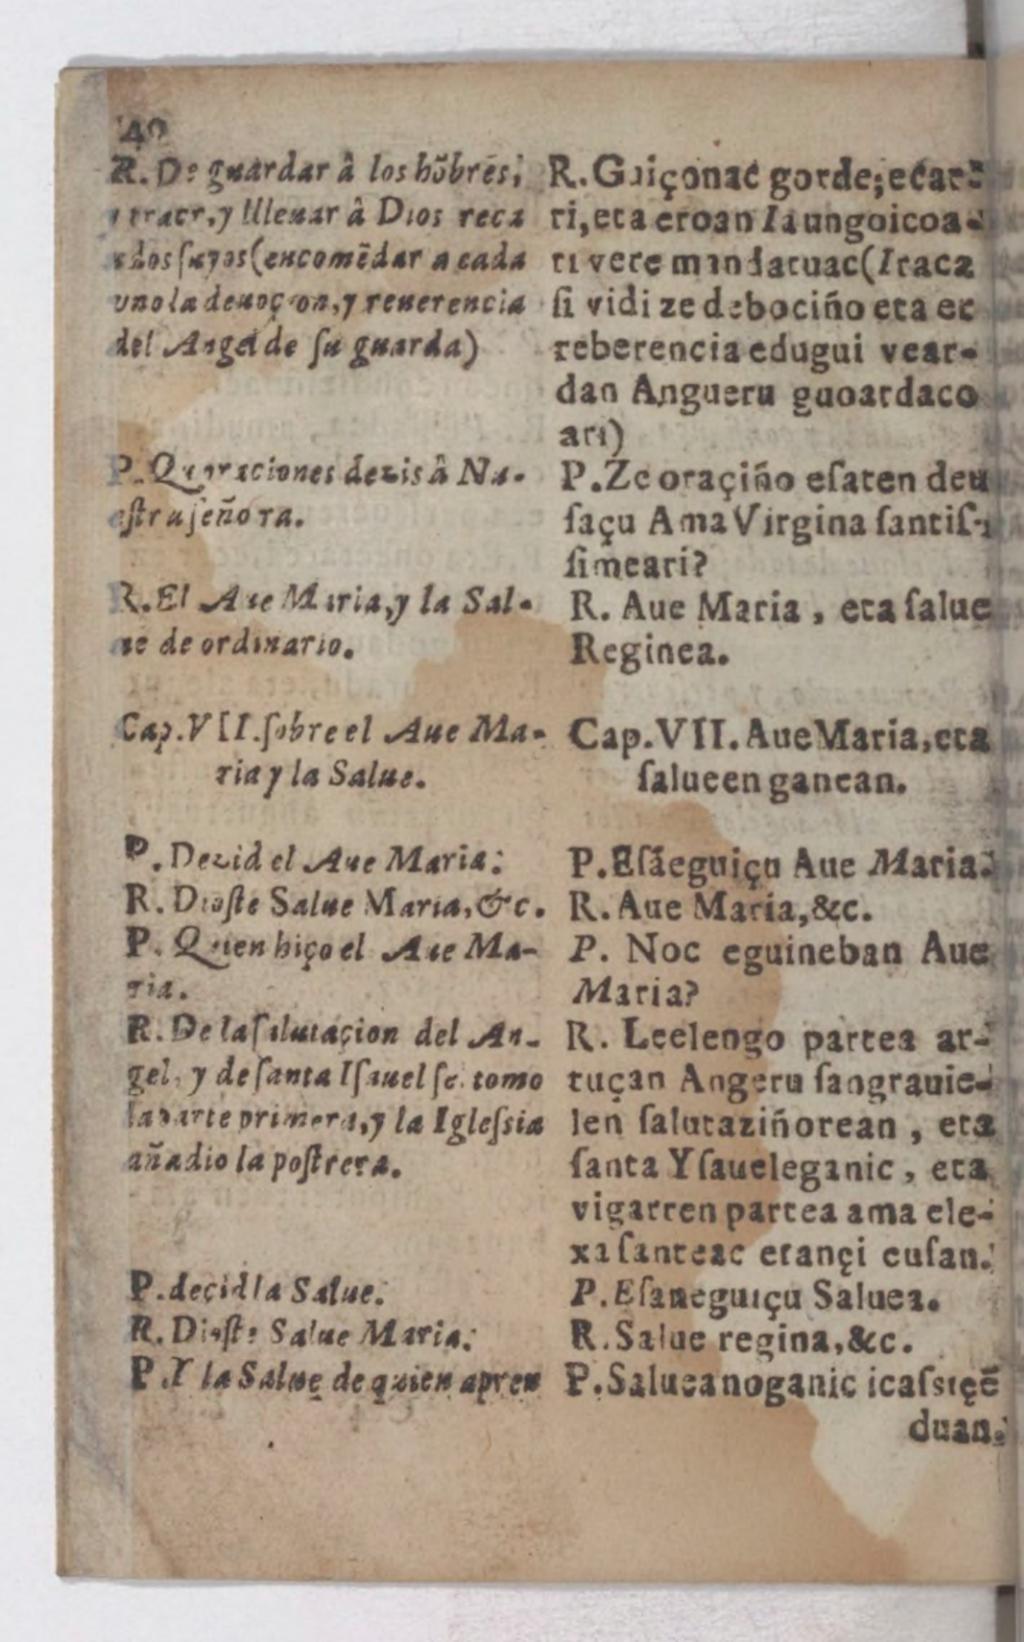 40
R. De guardar â los hõbres,
y traer, y lleuar â Dios reca
dos suyos (encomẽdar a cada
vno la deuoçion, y reuerencia
del Angel de su guarda)
P. Que oraciones dezis â Nu-
estra señora.
R. El Aue Maria, y la Sal-
ue de ordinario.
Cap. VII. sobre el Aue Ma-
ria y la Salue.
P. Dezid el Aue Maria:
R. Dioste Salue Maria, &c.
P. Quien hiço el Aue Ma-
ria.
R. De la salutaçion del An-
gel, y de santa Isauel se tomo
la parte primera, y la Iglessia
añadio la postrera.
P. deçid la Salue.
R. Dioste Salue Maria:
P. Y la Salue de quien apren
R. Guiçonac gorde; ecar-
ri, eta eroan Iaungoicoa-
ri vere mandatuac (Iraca
si vidi ze debociño eta er
reberencia edugui vear-
dan Angueru guoardaco
ari)
P. Ze oraçiño esaten deu
saçu Ama Virgina santis-
simeari?
R. Aue Maria, eta salue
Reginea.
Cap. VII. Aue Maria, eta
salueen ganean.
P. Esãeguiçu Aue Maria.
R. Aue Maria, &c.
P. Noc eguineban Aue
Maria?
R. Leelengo partea ar-
tuçan Angeru sangrauie-
len salutaziñorean, eta
santa Ysaueleganic, eta
vigarren partea ama ele-
xa santeac erançi eusan.
P. Esaneguiçu Saluea.
R. Salue regina, &c.
P. Salueanoganic icassiçẽ
duan.